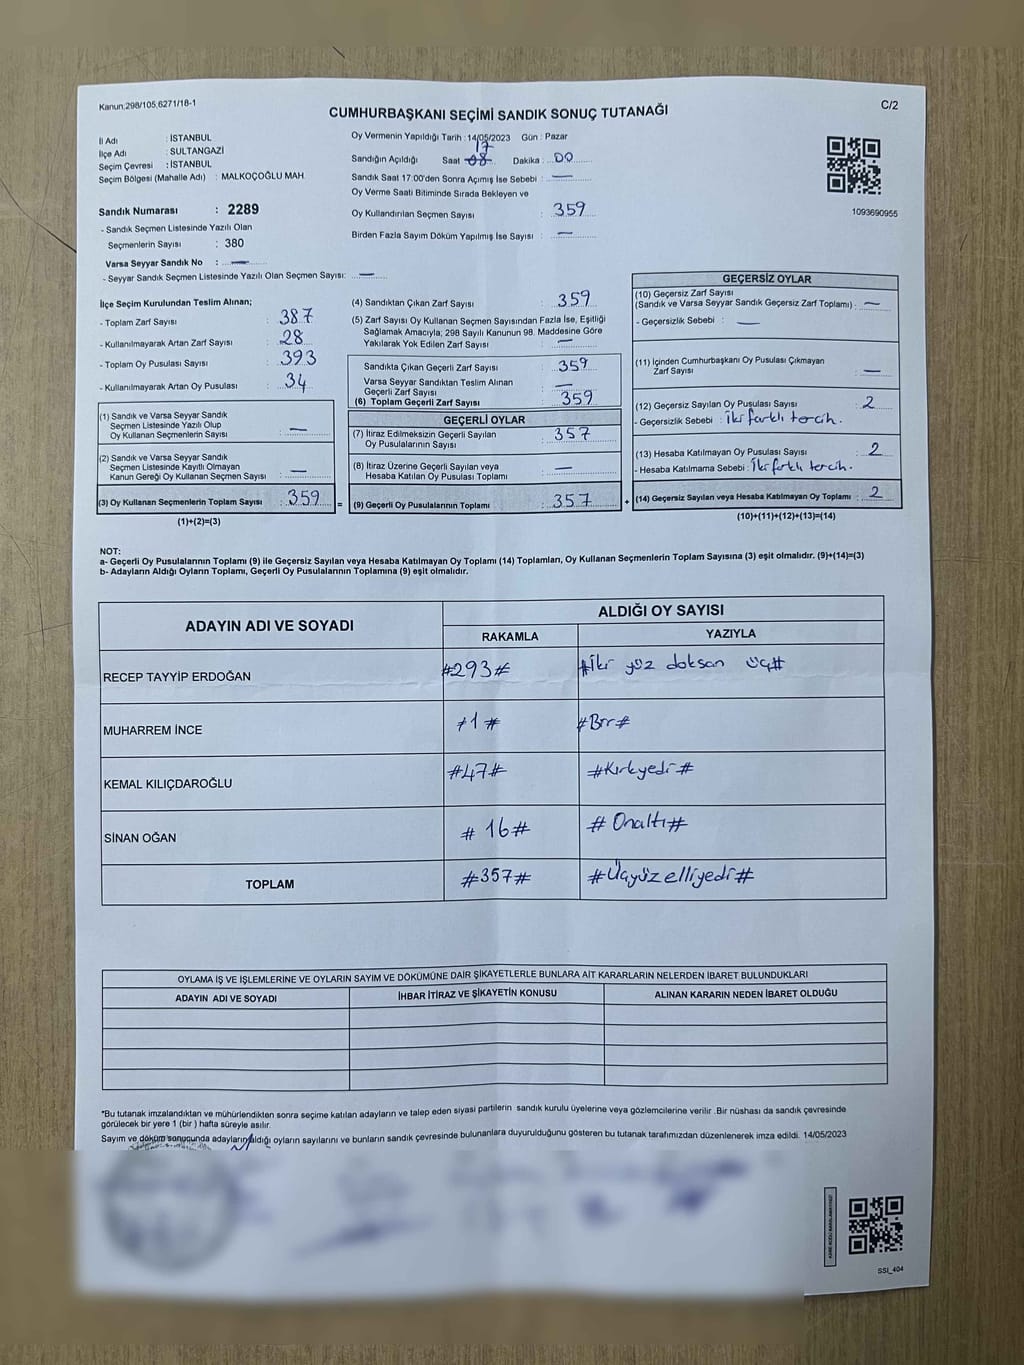 Kanun:298/105,6271/18-1
C/2
CUMHURBAŞKANI SEÇİMİ SANDIK SONUÇ TUTANAĞI
İl Adı : İSTANBUL
İlçe Adı : SULTANGAZİ
Seçim Çevresi : İSTANBUL
Seçim Bölgesi (Mahalle Adı) : MALKOÇOĞLU MAH.
Oy Vermenin Yapıldığı Tarih : 14/05/2023 Gün : Pazar
17
Sandığın Açıldığı Saat 08 Dakika : 00
Sandık Saat 17:00'den Sonra Açımış İse Sebebi : —
Oy Verme Saati Bitiminde Sırada Bekleyen ve
Oy Kullandırılan Seçmen Sayısı : 359
Birden Fazla Sayım Döküm Yapılmış İse Sayısı : —
1093690955
Sandık Numarası : 2289
- Sandık Seçmen Listesinde Yazılı Olan
Seçmenlerin Sayısı : 380
Varsa Seyyar Sandık No : —
- Seyyar Sandık Seçmen Listesinde Yazılı Olan Seçmen Sayısı: —
İlçe Seçim Kurulundan Teslim Alınan;
- Toplam Zarf Sayısı : 387
- Kullanılmayarak Artan Zarf Sayısı : 28
- Toplam Oy Pusulası Sayısı : 393
- Kullanılmayarak Artan Oy Pusulası : 34
(1) Sandık ve Varsa Seyyar Sandık
Seçmen Listesinde Yazılı Olup
Oy Kullanan Seçmenlerin Sayısı : —
(2) Sandık ve Varsa Seyyar Sandık
Seçmen Listesinde Kayıtlı Olmayan
Kanun Gereği Oy Kullanan Seçmen Sayısı : —
(3) Oy Kullanan Seçmenlerin Toplam Sayısı : 359 =
(1)+(2)=(3)
(4) Sandıktan Çıkan Zarf Sayısı : 359
(5) Zarf Sayısı Oy Kullanan Seçmen Sayısından Fazla İse, Eşitliği
Sağlamak Amacıyla; 298 Sayılı Kanunun 98. Maddesine Göre
Yakılarak Yok Edilen Zarf Sayısı : —
Sandıkta Çıkan Geçerli Zarf Sayısı : 359
Varsa Seyyar Sandıktan Teslim Alınan
Geçerli Zarf Sayısı : —
(6) Toplam Geçerli Zarf Sayısı : 359
GEÇERLİ OYLAR
(7) İtiraz Edilmeksizin Geçerli Sayılan
Oy Pusulalarının Sayısı : 357
(8) İtiraz Üzerine Geçerli Sayılan veya
Hesaba Katılan Oy Pusulası Toplamı : —
(9) Geçerli Oy Pusulalarının Toplamı : 357 +
GEÇERSİZ OYLAR
(10) Geçersiz Zarf Sayısı
(Sandık ve Varsa Seyyar Sandık Geçersiz Zarf Toplamı) : —
- Geçersizlik Sebebi : —
(11) İçinden Cumhurbaşkanı Oy Pusulası Çıkmayan
Zarf Sayısı : —
(12) Geçersiz Sayılan Oy Pusulası Sayısı : 2
- Geçersizlik Sebebi : İki farklı tercih.
(13) Hesaba Katılmayan Oy Pusulası Sayısı : 2
- Hesaba Katılmama Sebebi : İki farklı tercih.
(14) Geçersiz Sayılan veya Hesaba Katılmayan Oy Toplamı : 2
(10)+(11)+(12)+(13)=(14)
NOT:
a- Geçerli Oy Pusulalarının Toplamı (9) ile Geçersiz Sayılan veya Hesaba Katılmayan Oy Toplamı (14) Toplamları, Oy Kullanan Seçmenlerin Toplam Sayısına (3) eşit olmalıdır. (9)+(14)=(3)
b- Adayların Aldığı Oyların Toplamı, Geçerli Oy Pusulalarının Toplamına (9) eşit olmalıdır.
ADAYIN ADI VE SOYADI
ALDIĞI OY SAYISI
RAKAMLA YAZIYLA
RECEP TAYYİP ERDOĞAN #293# #İki yüz doksan üç#
MUHARREM İNCE #1# #Bir#
KEMAL KILIÇDAROĞLU #47# #Kırkyedi#
SİNAN OĞAN #16# #Onaltı#
TOPLAM #357# #Üçyüzelliyedi#
OYLAMA İŞ VE İŞLEMLERİNE VE OYLARIN SAYIM VE DÖKÜMÜNE DAİR ŞİKAYETLERLE BUNLARA AİT KARARLARIN NELERDEN İBARET BULUNDUKLARI
ADAYIN ADI VE SOYADI İHBAR İTİRAZ VE ŞİKAYETİN KONUSU ALINAN KARARIN NEDEN İBARET OLDUĞU
*Bu tutanak imzalandıktan ve mühürlendikten sonra seçime katılan adayların ve talep eden siyasi partilerin sandık kurulu üyelerine veya gözlemcilerine verilir .Bir nüshası da sandık çevresinde
görülecek bir yere 1 (bir ) hafta süreyle asılır.
Sayım ve döküm sonucunda adayların aldığı oyların sayılarını ve bunların sandık çevresinde bulunanlara duyurulduğunu gösteren bu tutanak tarafımızdan düzenlenerek imza edildi. 14/05/2023
SSI_404